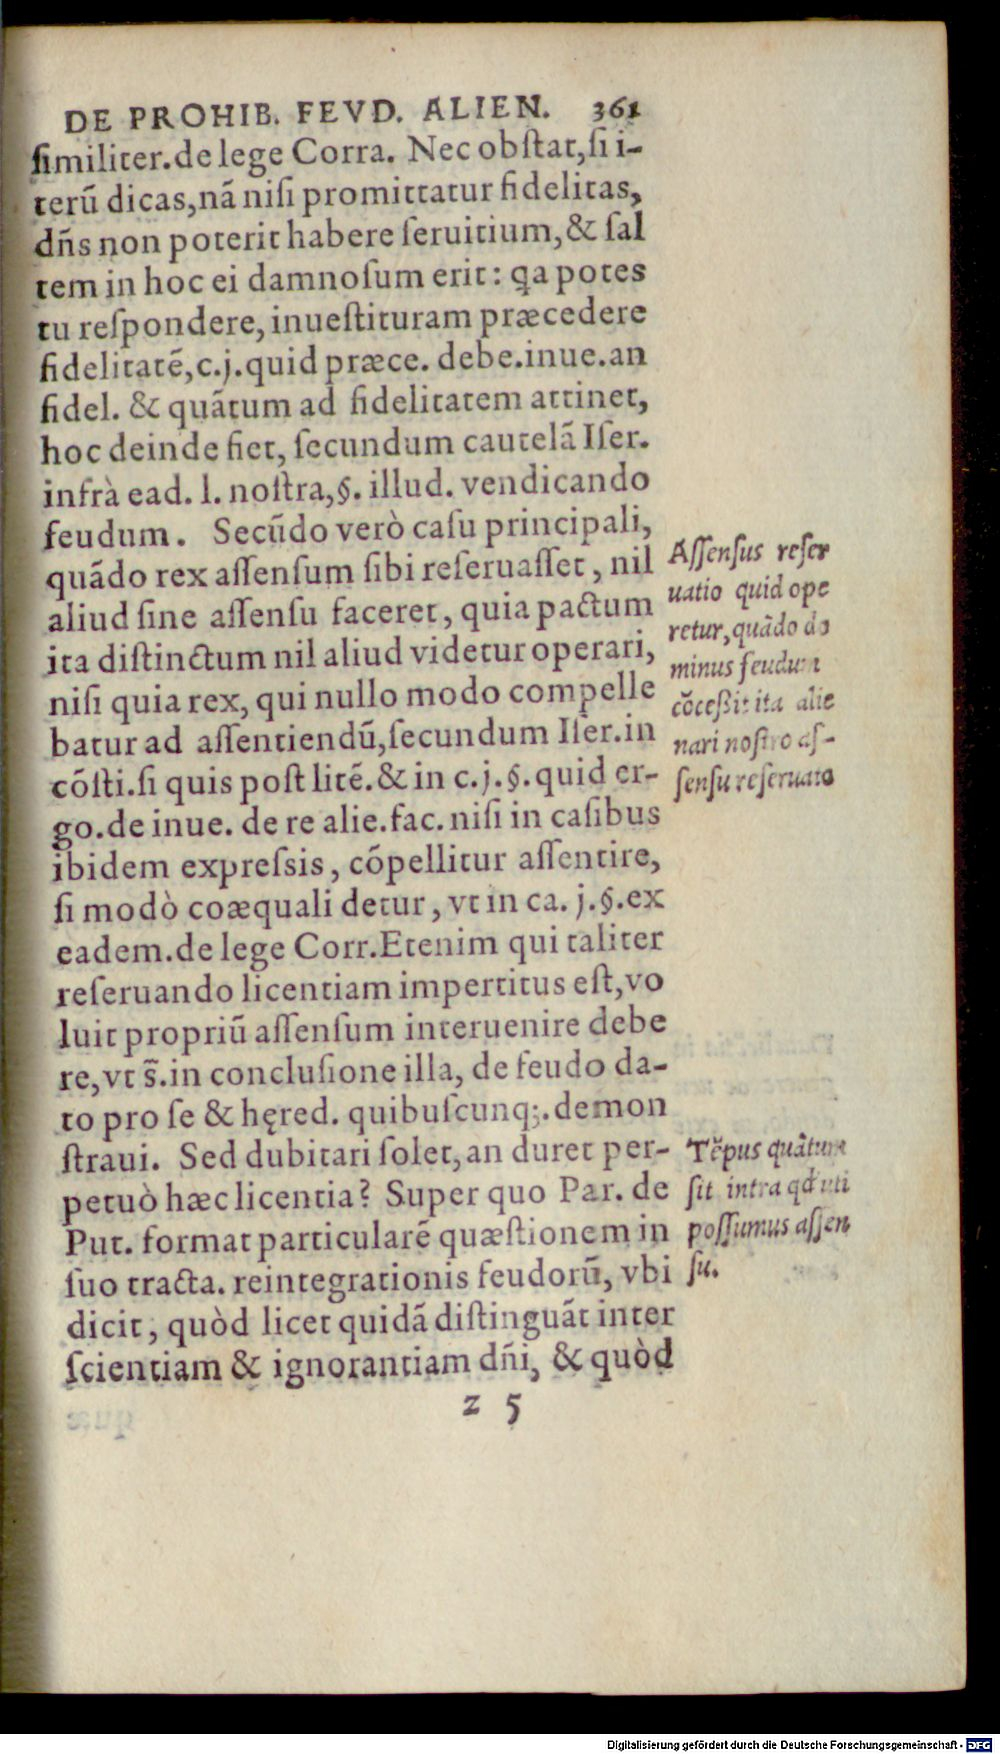 DE PROHIB. FEVD. ALIEN. 361
ſimiliter.de lege Corra. Nec obſtat,ſi i-
terũ dicas,nã niſi promittatur fidelitas,
dñs non poterit habere ſeruitium,& ſal
tem in hoc ei damnoſum erit: ꝗa potes
tu reſpondere, inueſtituram præcedere
fidelitatẽ,c.j.quid præce. debe.inue.an
fidel. & quãtum ad fidelitatem attinet,
hoc deinde fiet, ſecundum cautelã Iſer.
infrà ead. l. noſtra,§. illud. vendicando
feudum. Secũdo verò caſu principali,
quãdo rex aſſenſum ſibi reſeruaſſet, nil
aliud ſine aſſenſu faceret, quia pactum
ita diſtinctum nil aliud videtur operari,
niſi quia rex, qui nullo modo compelle
batur ad aſſentiendũ,ſecundum Iſer.in
cõſti.ſi quis poſt litẽ.& in c.j.§.quid er-
go.de inue. de re alie.fac. niſi in caſibus
ibidem expreſsis, cõpellitur aſſentire,
ſi modò coæquali detur, vt in ca. j.§.ex
eadem.de lege Corr.Etenim qui taliter
reſeruando licentiam impertitus eſt,vo
luit propriũ aſſenſum interuenire debe
re,vt s̃.in concluſione illa, de feudo da-
to pro ſe & hęred. quibuſcunq;.demon
ſtraui. Sed dubitari ſolet,an duret per-
petuò hæc licentia? Super quo Par. de
Put. format particularẽ quæſtionem in
ſuo tracta. reintegrationis feudorũ, vbi
dicit, quòd licet quidã diſtinguãt inter
ſcientiam & ignorantiam dñi, & quòd
z 5
Aſſenſus reſer
uatio quid ope
retur,quãdo do
minus feudum
cõceßit ita alie
nari noſtro aſ-
ſenſu reſeruato
Tẽpus quãtum
ſit intra qd uti
poſſumus aſſen
ſu.
Digitalisierung gefördert durch die Deutsche Forschungsgemeinschaft - DFG